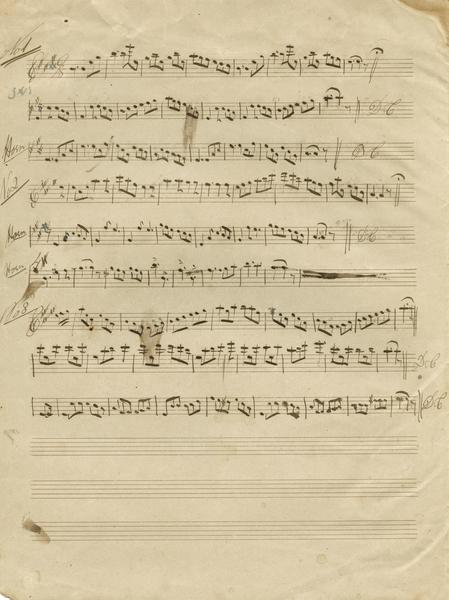 No 1
D.C
Horn D.C
No 2
Horn D.C
Horn
No 3
D.C
D.C